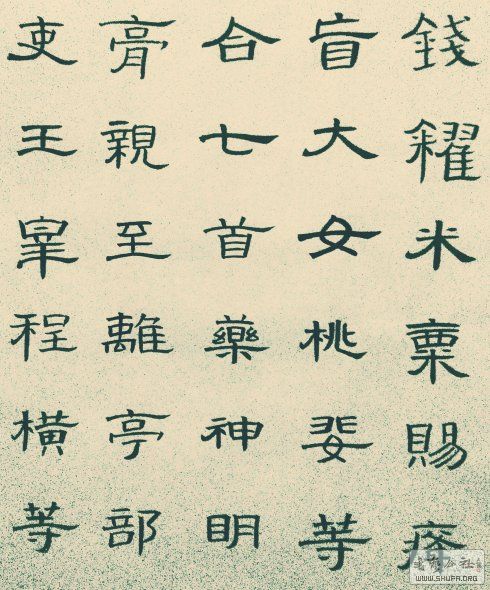 錢糴米粟賜癃
盲大女桃婓等
合七首藥神眀
膏親至離亭部
吏王皐程橫等